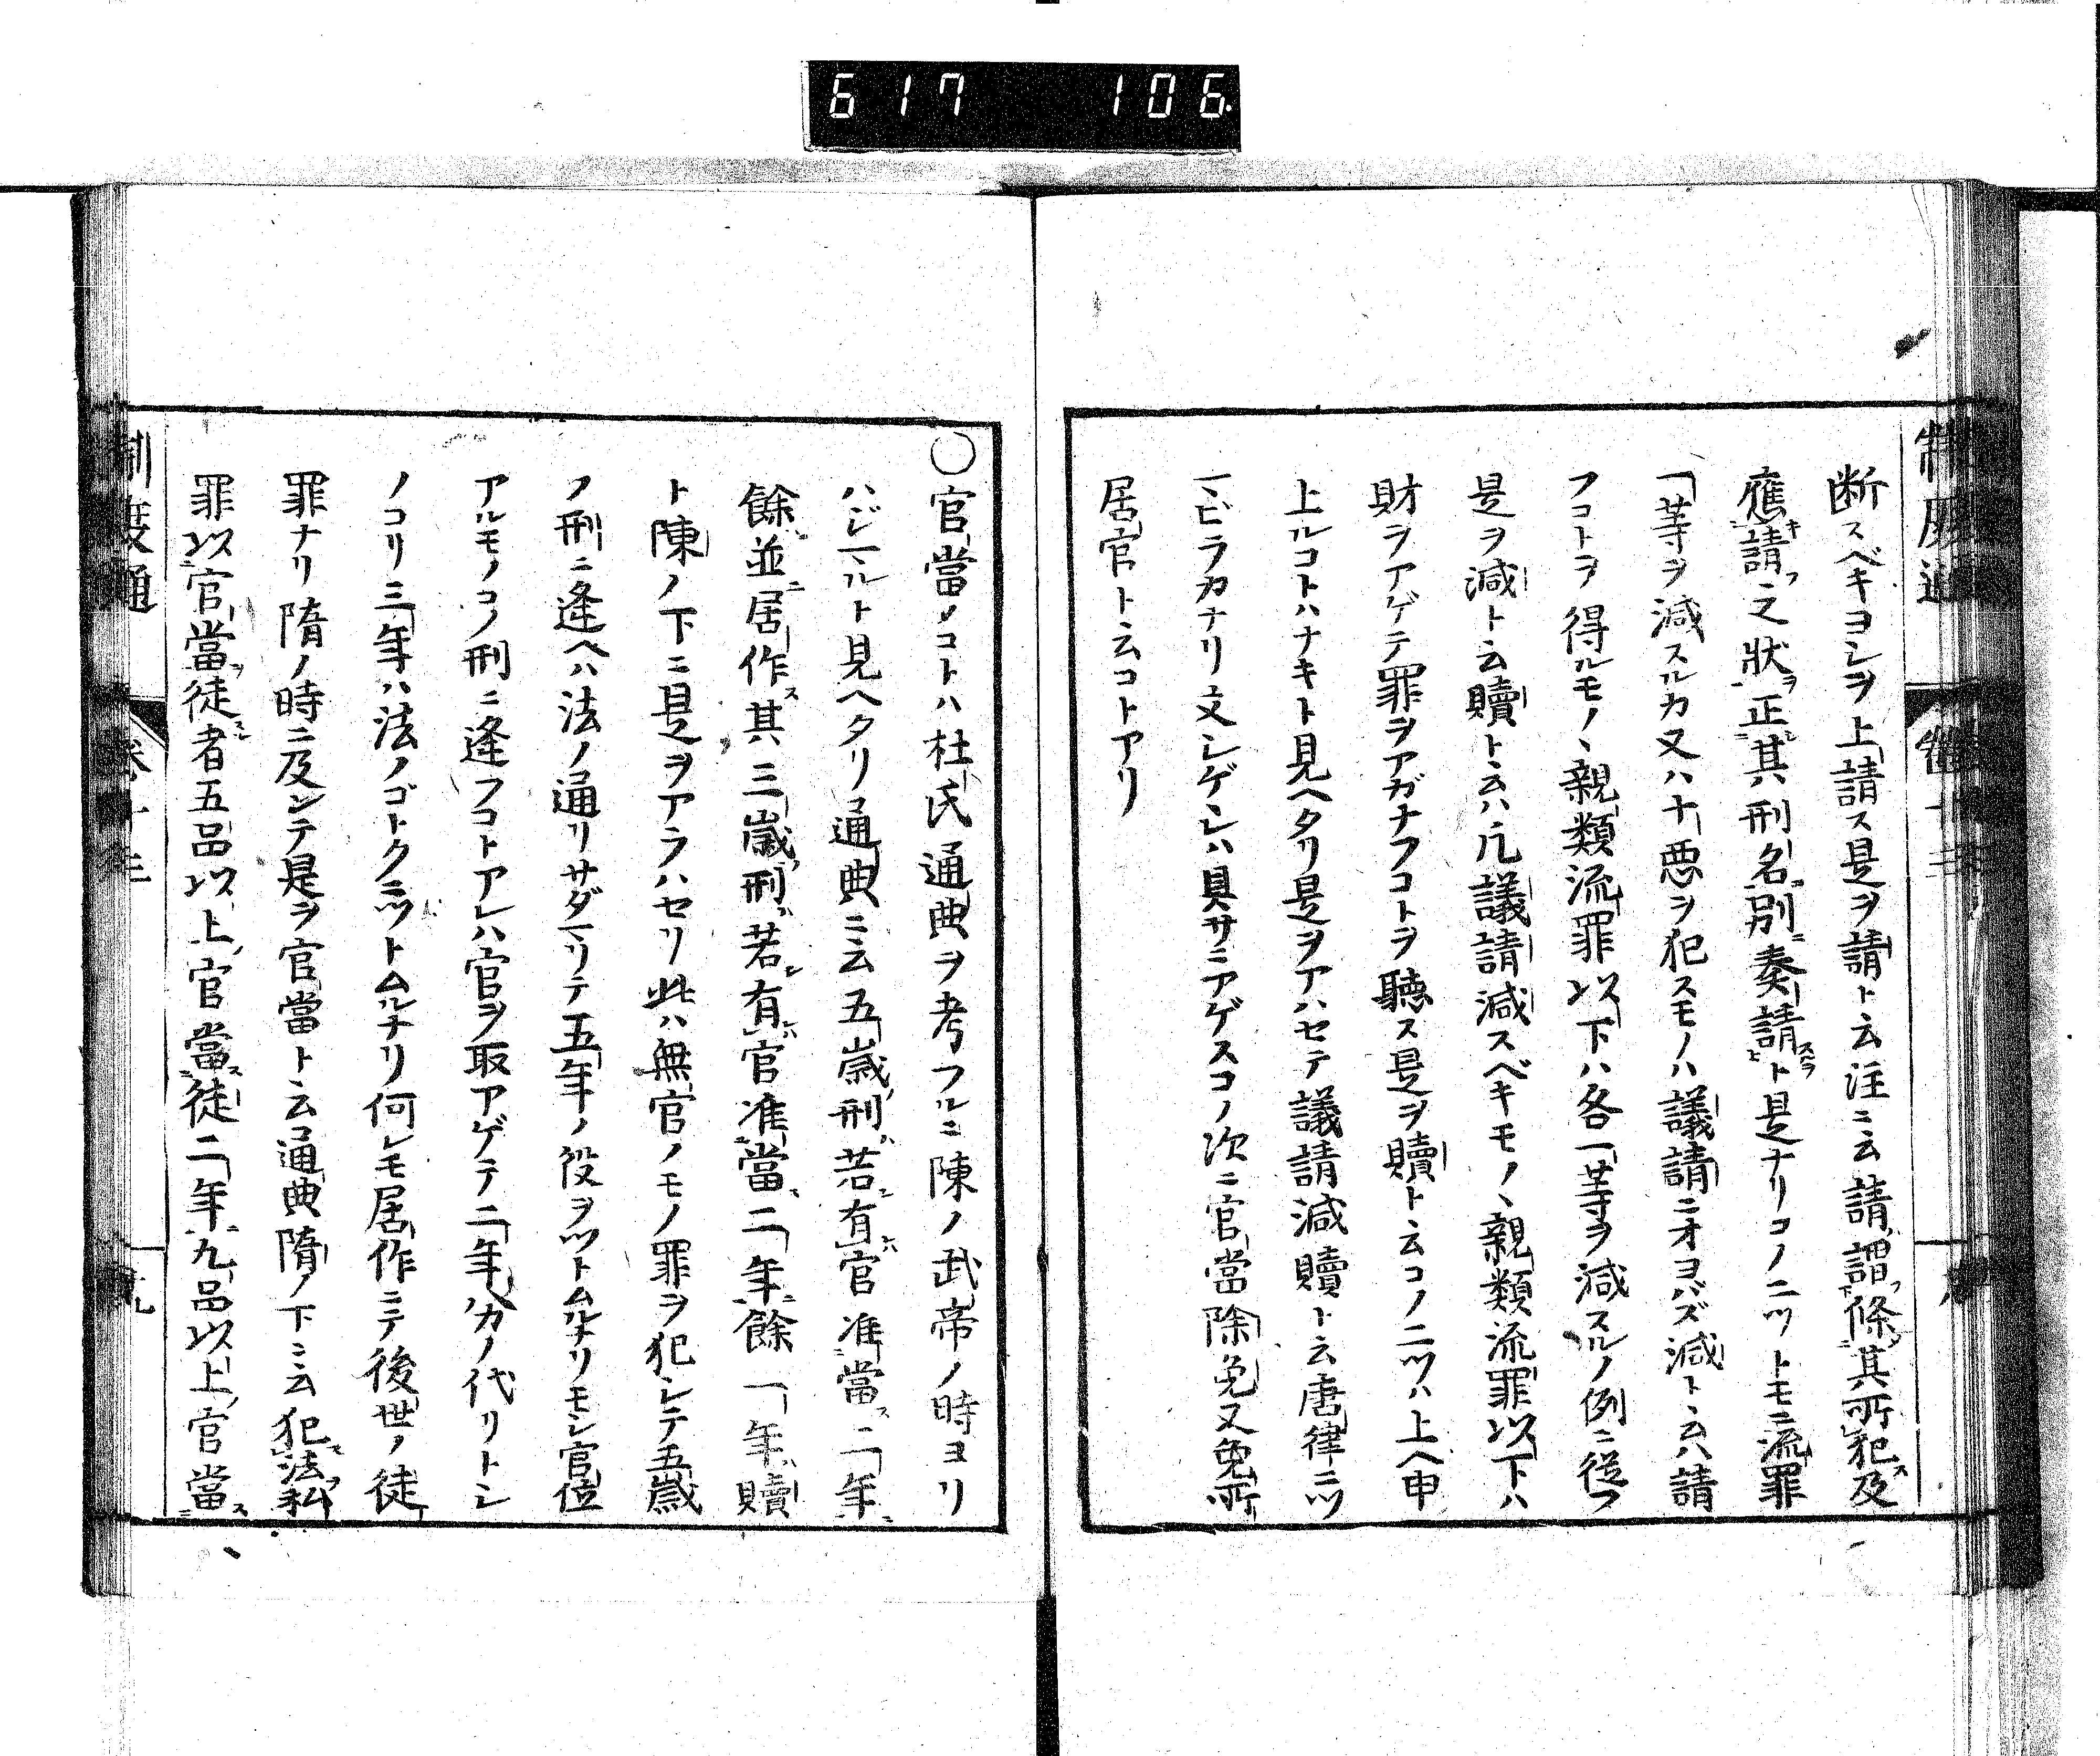 617 106
制度通 卷十三
断スベキヨシヲ上請ス是ヲ請ト云注ニ云請謂條其所犯及
應請之狀正其刑名別奏請ト是ナリコノ二ツトモニ流罪
一等ヲ減スルカ又ハ十惡ヲ犯スモノハ議請ニオヨバズ減ト云ハ請
フコトヲ得ルモノヽ親類流罪以下ハ各一等ヲ減スルノ例ニ從フ
是ヲ減ト云贖ト云ハ凢議請減スベキモノヽ親類流罪以下ハ
財ヲアゲテ罪ヲアガナフコトヲ聽ス是ヲ贖ト云コノ二ツハ上ヘ申
上ルコトハナキト見ヘタリ是ヲアハセテ議請減贖ト云唐律ニツ
マビラカナリ文シゲシハ具サニアゲスコノ次ニ官當除免又免所
居官ト云コトアリ
〇官當ノコトハ杜氏通典ヲ考フルニ陳ノ武帝ノ時ヨリ
ハジマルト見ヘタリ通典ニ云五歲刑若有官准當二年
餘並居作其三歲刑若有官准當二年餘一年贖
ト陳ノ下ニ是ヲアラハセリ此ハ無官ノモノ罪ヲ犯シテ五歲
ノ刑ニ逢ヘハ法ノ通リサダマリテ五年ノ役ヲツトムルナリモシ官位
アルモノコノ刑ニ逢フコトアレハ官ヲ取アゲテ二年ハカノ代リトシ
ノコリ三年ハ法ノゴトクニツトムルナリ何レモ居作ニテ後世ノ徒
罪ナリ隋ノ時ニ及ンテ是ヲ官當ト云通典隋ノ下ニ云犯法私
罪以官當徒者五品以上官當徒二年九品以上官當
制度通 卷十三